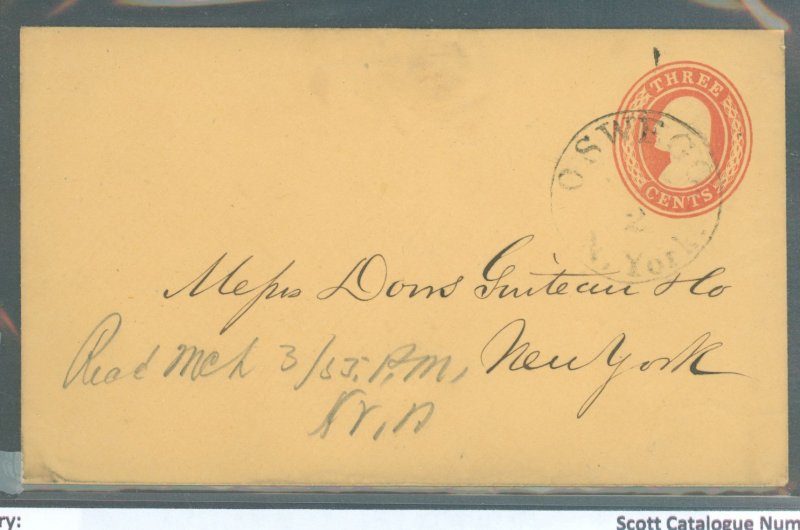 THREE
CENTS
OSWEGO
2
N. York.
Messrs Dows Guiteau & Co
New York
Recd Mch 3/55. P.M.
ry:
Scott Catalogue Num